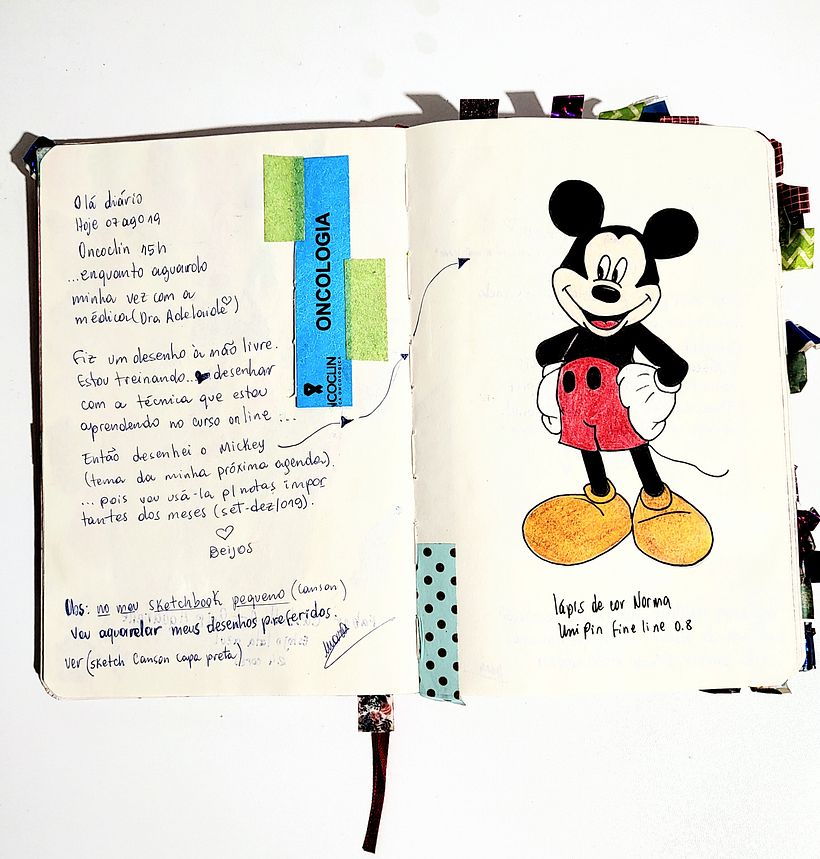 Olá diário
Hoje 07 ago 19
Oncoclin 15h
...enquanto aguardo
minha vez com a
médica (Dra. Adelaide♡)
Fiz um desenho à mão livre.
Estou treinando...♥desenhar
com a técnica que estou
aprendendo no curso online ...
Então desenhei o Mickey
(tema da minha próxima agenda).
... pois vou usá-la p/ notas impor
tantes dos meses (set-dez/019).
♡
Beijos
Obs: no meu sketchbook pequeno (Canson)
vou aquarelar meus desenhos preferidos.
ver (sketch Canson capa preta)
ONCOLOGIA
NCOCLIN
lápis de cor Norma
Uni Pin fine line 0.8